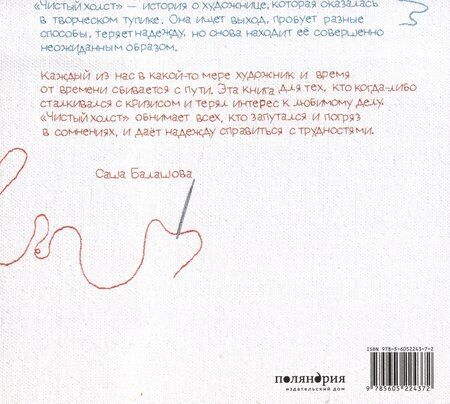 «Чистый холст» — история о художнице, которая оказалась
в творческом тупике. Она ищет выход, пробует разные
способы, теряет надежду, но снова находит её совершенно
неожиданным образом.
Каждый из нас в какой-то мере художник и время
от времени сбивается с пути. Эта книга для тех, кто когда-либо
сталкивался с кризисом и терял интерес к любимому делу.
«Чистый холст» обнимает всех, кто запутался и погряз
в сомнениях, и даёт надежду справиться с трудностями.
Саша Балашова
ISBN 978-5-6052243-7-2
9 785605 224372
поляндрия
издательский дом